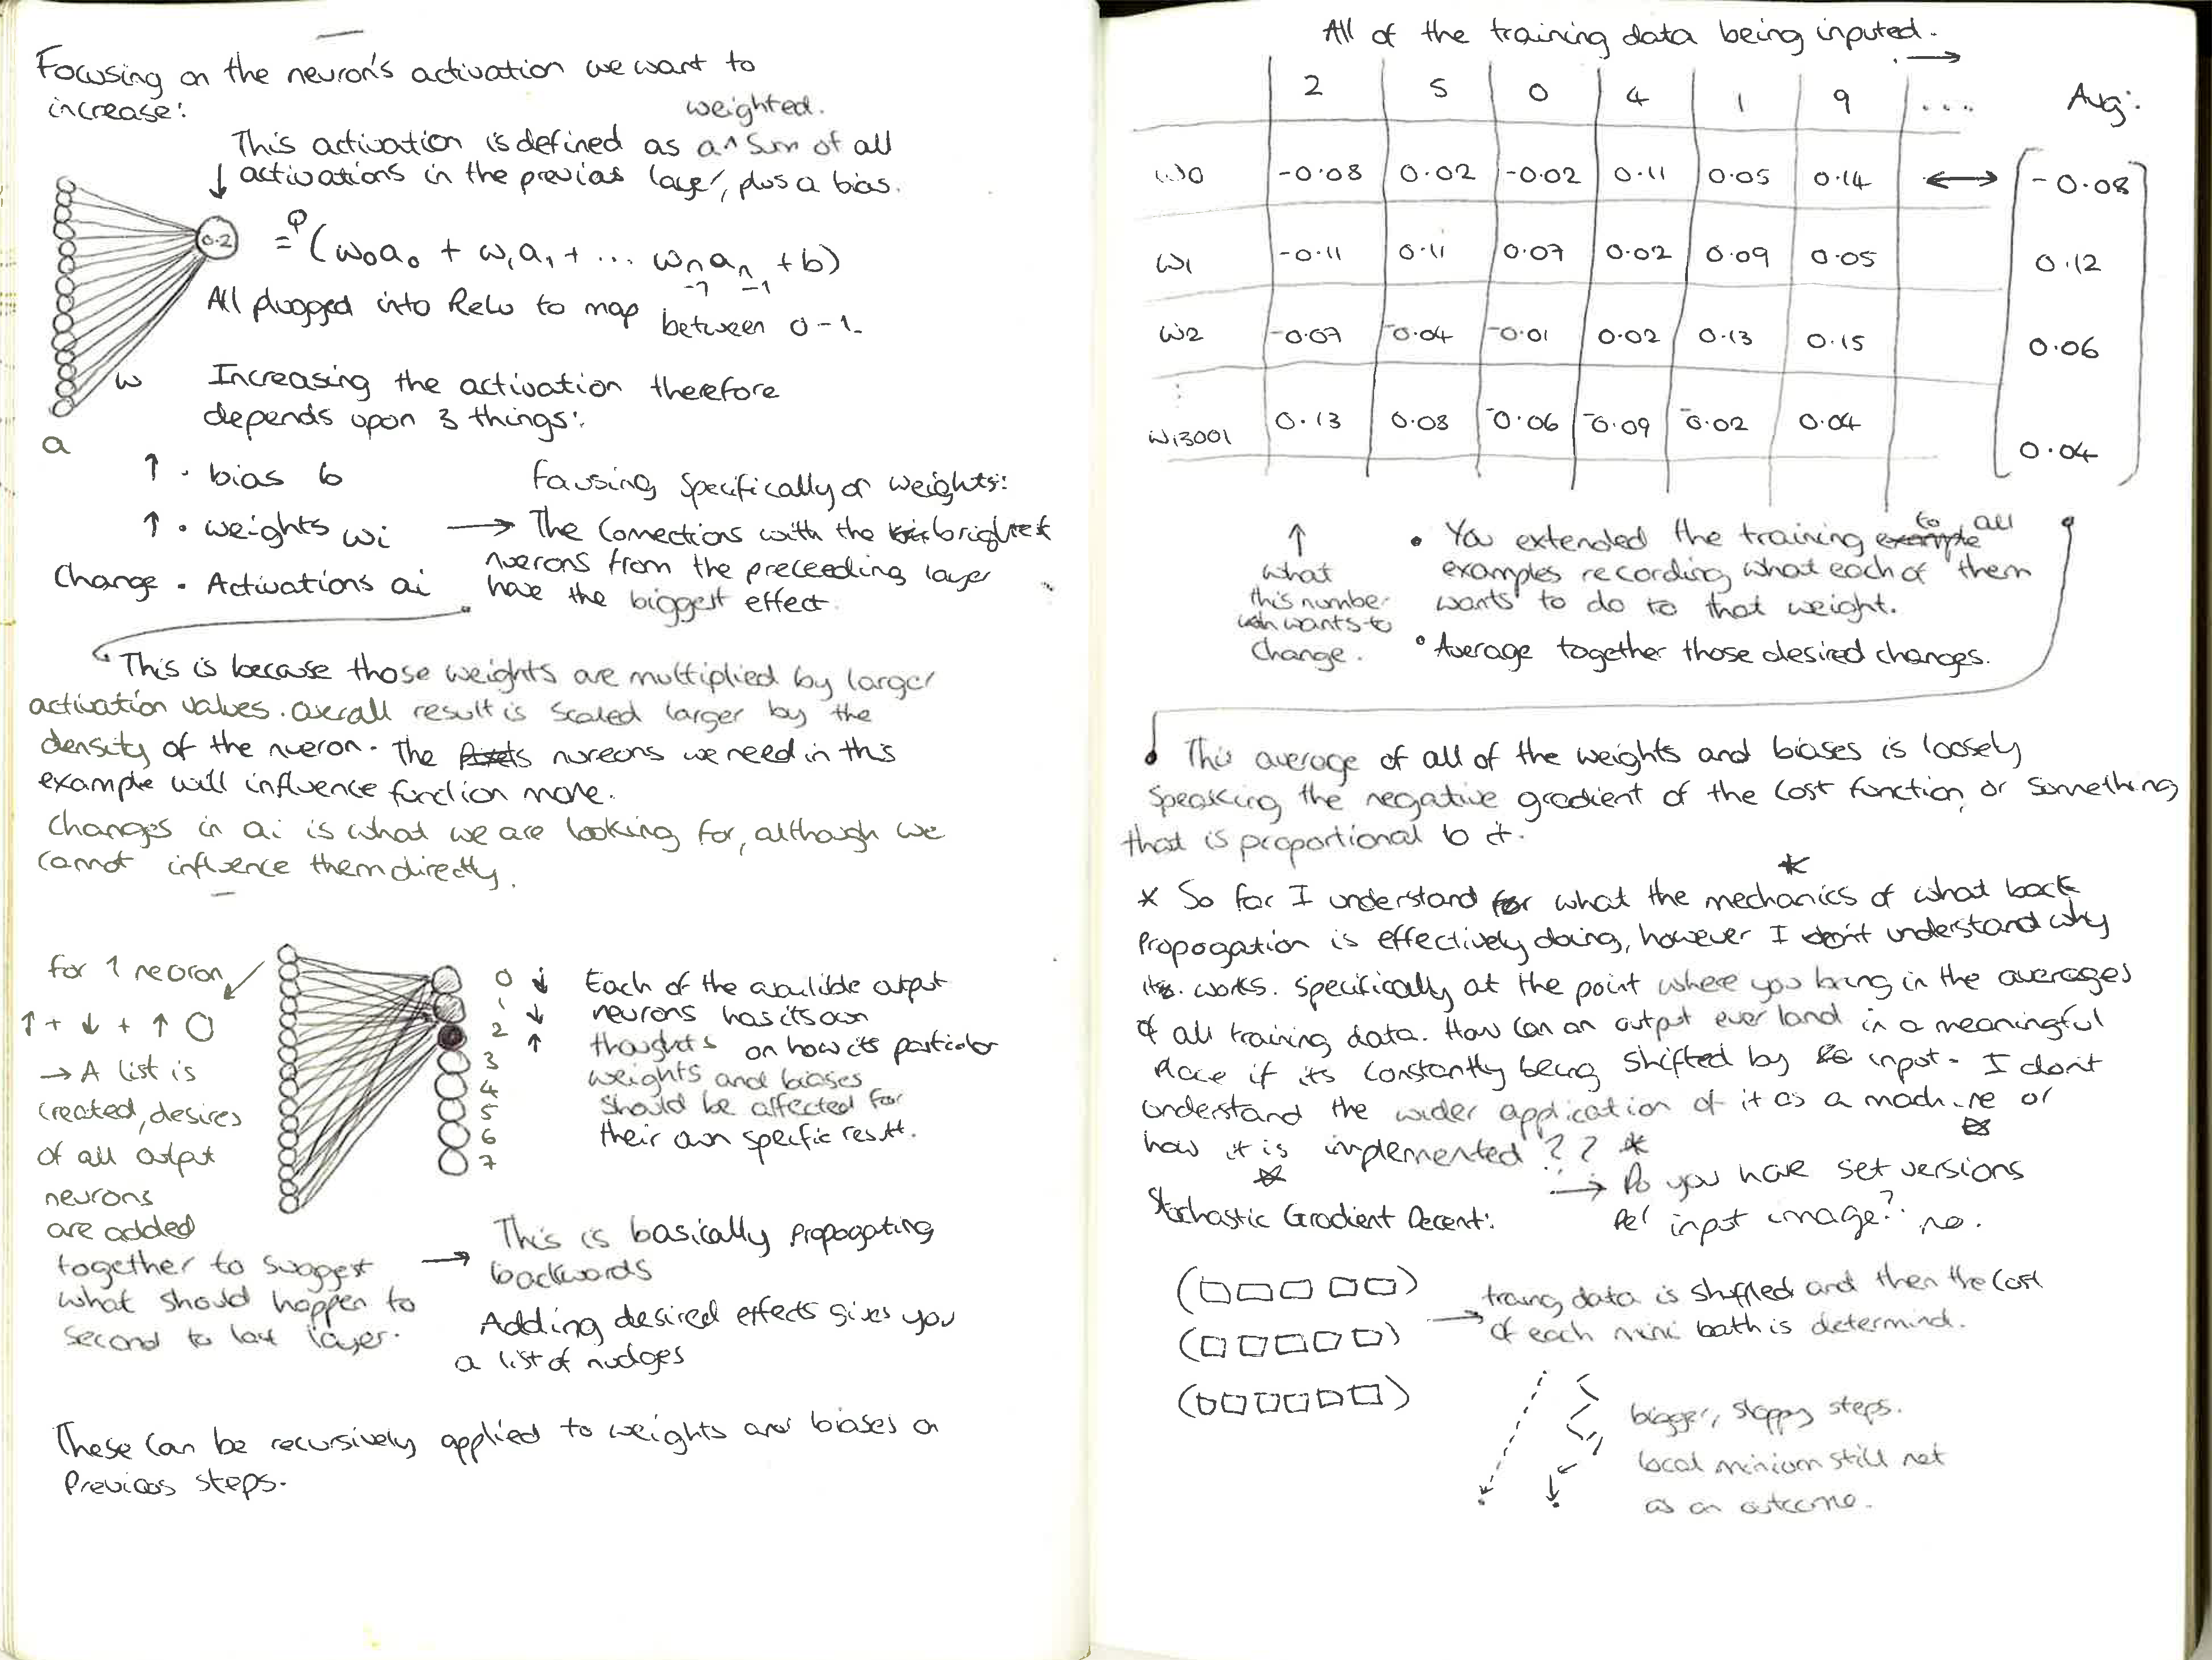 Focusing on the neuron's activation we want to
increase:
weighted.
This activation is defined as a ^ sum of all
activations in the previos layer, plus a bias.
0.2
= φ(w0a0 + w1a1 + ... wn-1 an-1 + b)
All plugged into Relu to map between 0-1.
w
a
Increasing the activation therefore
depends upon 3 things:
↑ · bias b
↑ · weights wi
Change · Activations ai
Focusing specifically on weights:
→ The connections with the brightest
nuerons from the preceeding layer
have the biggest effect.
This is because those weights are multiplied by larger
activation values. overall result is scaled larger by the
density of the nueron. The nureons we need in this
example will influence function more.
Changes in ai is what we are looking for, although we
cannot influence them directly.
for 1 neuron
↑ + ↓ + ↑ O
→ A list is
created, desires
of all output
neurons
are added
together to suggest
what should happen to
second to last layer.
0 ↓
1 ↓
2 ↑
3
4
5
6
7
Each of the availible output
neurons has its own
thoughts on how its particular
weights and biases
should be affected for
their own specific result.
→ This is basically propogating
backwards
Adding desired effects gives you
a list of nudges
These can be recursively applied to weights and biases on
previous steps.
All of the training data being inputed. →
2 5 0 4 1 9 ... Avg:
w0 -0.08 0.02 -0.02 0.11 0.05 0.14 ↔ -0.08
w1 -0.11 0.11 0.07 0.02 0.09 0.05 0.12
w2 -0.07 -0.04 -0.01 0.02 0.13 0.15 0.06
⋮
w13001 0.13 0.08 -0.06 -0.09 -0.02 0.04 0.04
↑
what
this number
wants to
change.
• You extended the training example to all
examples recording what each of them
wants to do to that weight.
• Average together those desired changes.
This average of all of the weights and biases is loosely
speaking the negative gradient of the cost function, or something
that is proportional to it.
*
* So far I understand for what the mechanics of what back
propogation is effectively doing, however I don't understand why
its works. specifically at the point where you bring in the averages
of all training data. How can an output ever land in a meaningful
place if its constantly being shifted by input. I don't
understand the wider application of it as a machine or
how it is implemented?? *
→ Do you have set versions
per input image? no.
Stochastic Gradient Decent:
→ traing data is shuffled and then the cost
of each mini bath is determind.
bigger, sloppy steps.
local minium still not
as an outcome.